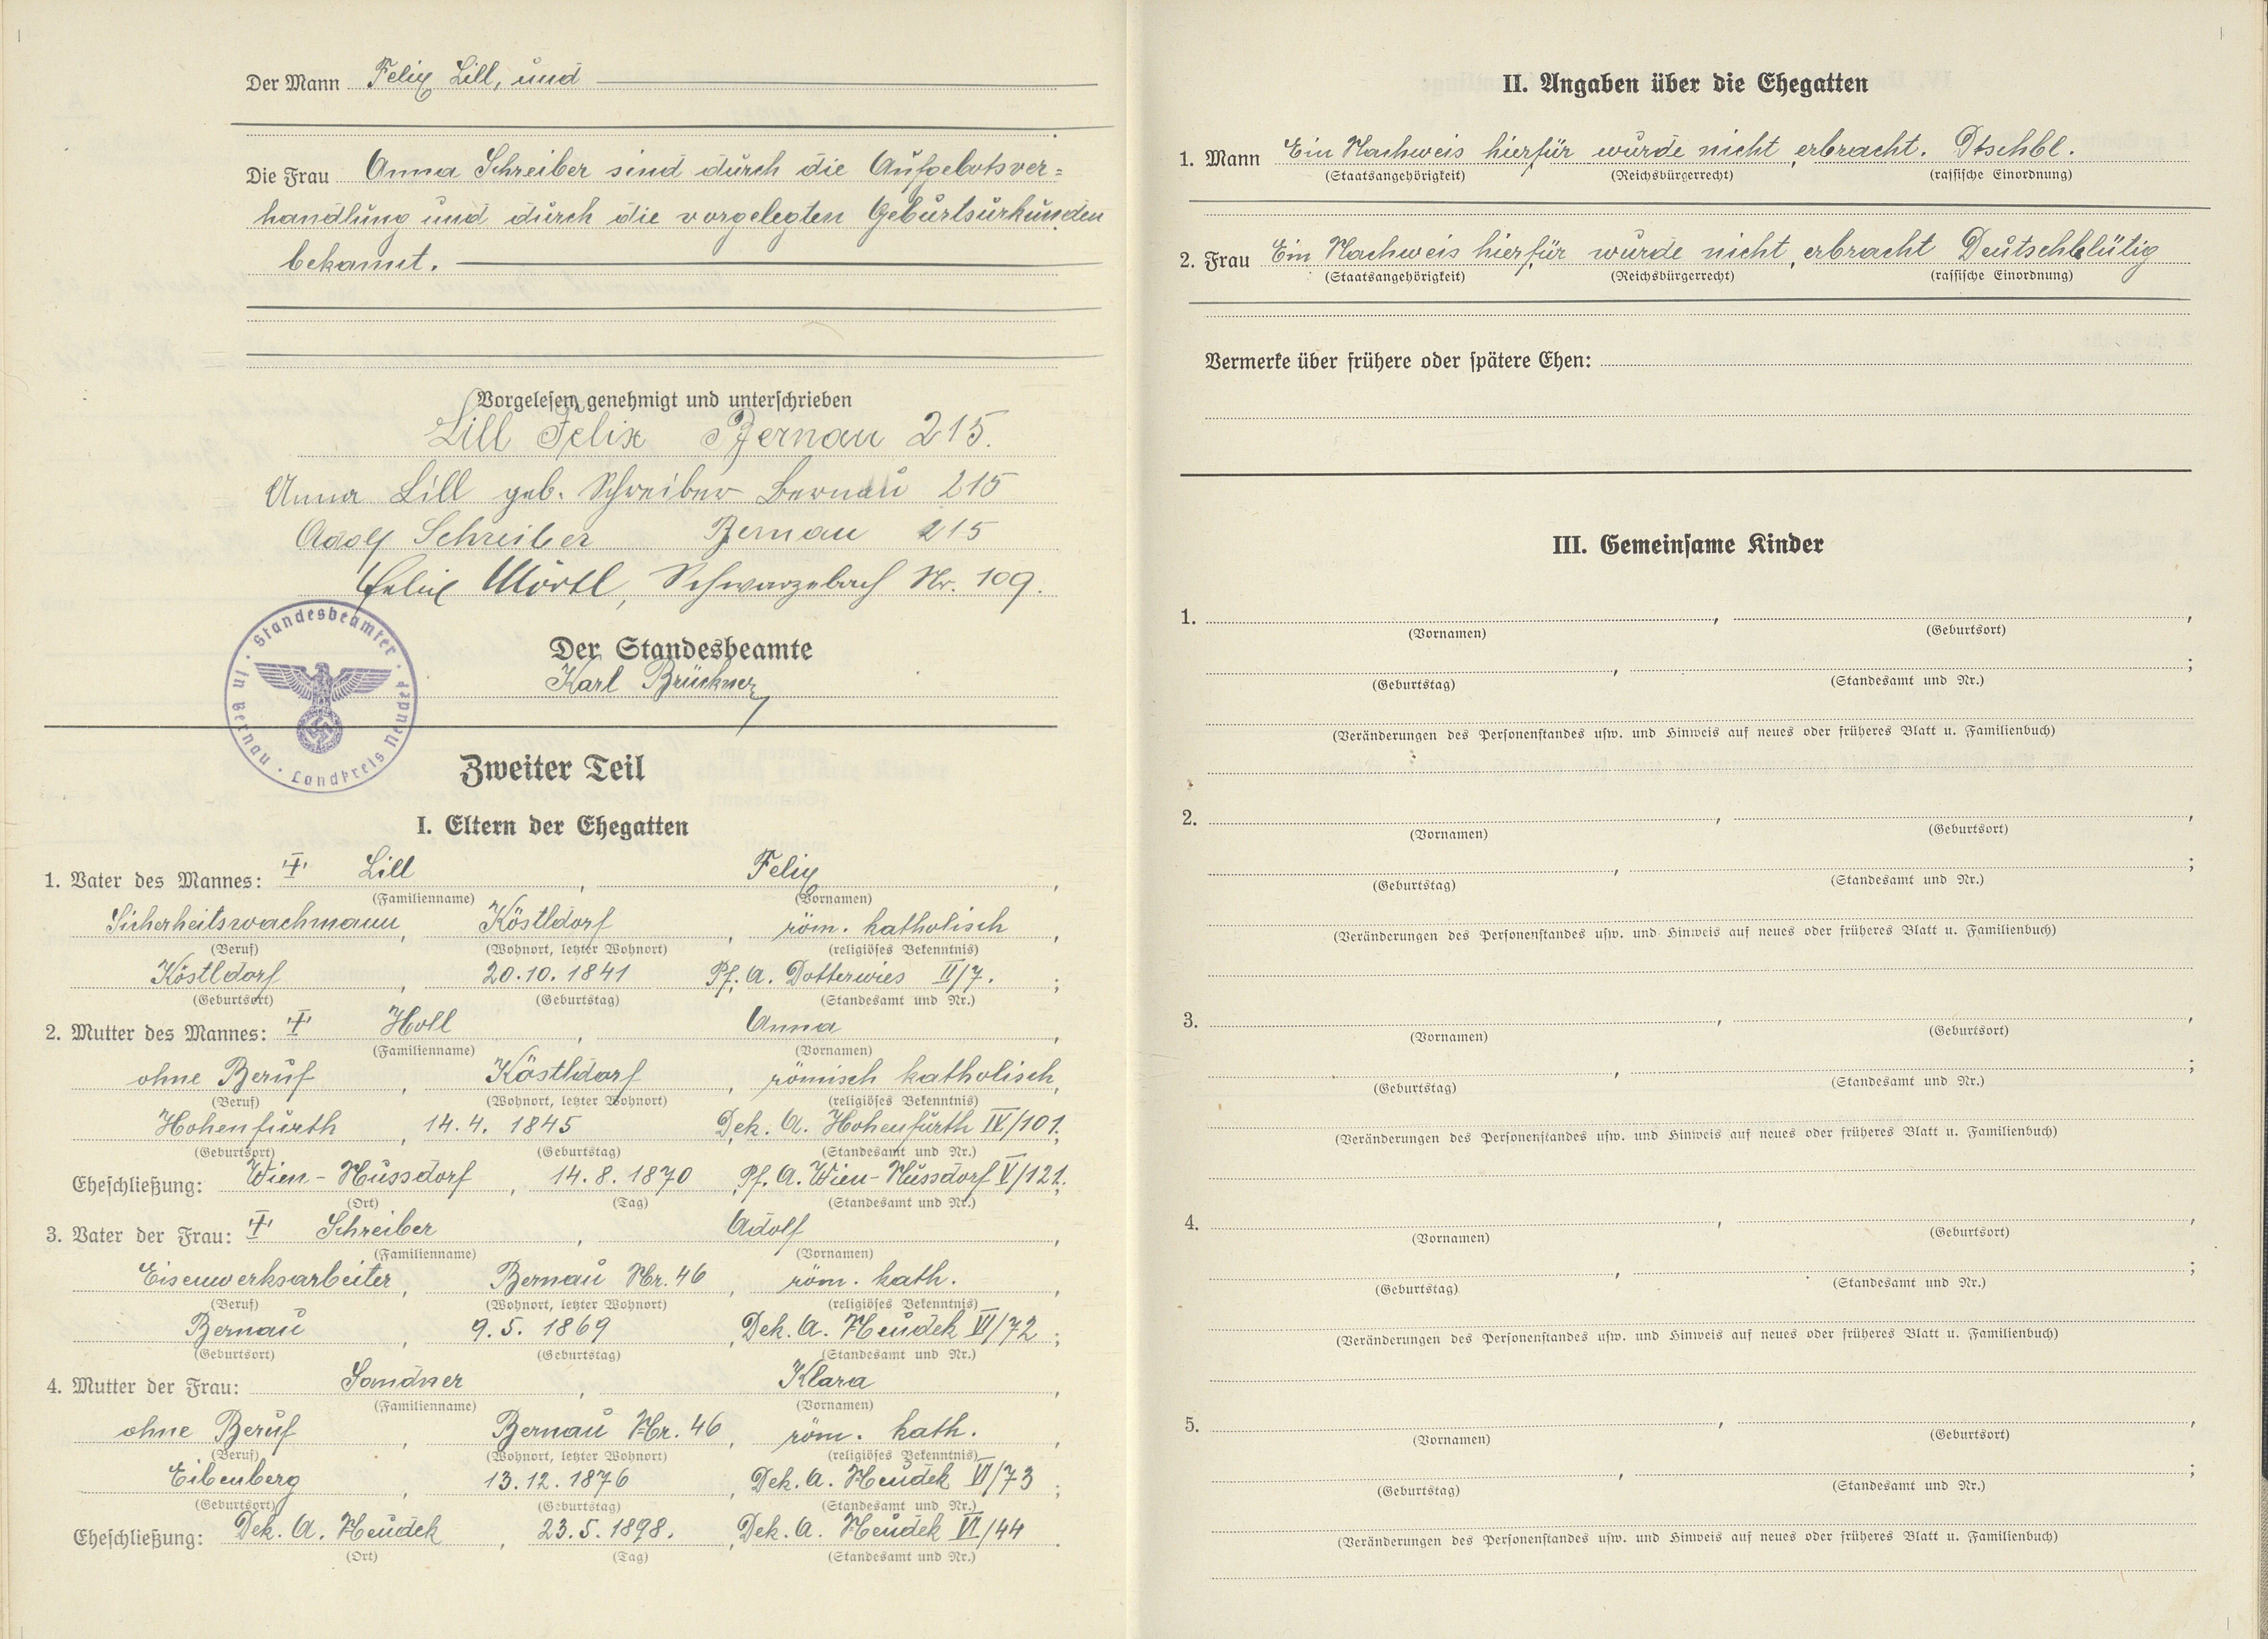 Der Mann Felix Lill, und
Die Frau Anna Schreiber sind durch die Aufgebotsver=
handlung und durch die vorgelegten Geburtsurkunden
bekannt.
Vorgelesen, genehmigt und unterschrieben
Lill Felix Bernau 215.
Anna Lill geb. Schreiber Bernau 215
Adolf Schreiber Bernau 215
Felix Mörtl, Schwarzebach Nr. 109.
Der Standesbeamte
Karl Brückner
Standesbeamter · in Bernau · Landkreis Neudek ·
Zweiter Teil
I. Eltern der Ehegatten
1. Vater des Mannes: Lill, Felix,
(Familienname) (Vornamen)
Sicherheitswachmann, Köstldorf, röm. katholisch,
(Beruf) (Wohnort, letzter Wohnort) (religiöses Bekenntnis)
Köstldorf, 20.10.1841 Pf. A. Dotterwies II/7.;
(Geburtsort) (Geburtstag) (Standesamt und Nr.)
2. Mutter des Mannes: Holl, Anna,
(Familienname) (Vornamen)
ohne Beruf, Köstldorf, römisch katholisch,
(Beruf) (Wohnort, letzter Wohnort) (religiöses Bekenntnis)
Hohenfurth, 14.4. 1845 Dek. A. Hohenfurth IV/101.;
(Geburtsort) (Geburtstag) (Standesamt und Nr.)
Eheschließung: Wien-Nussdorf, 14.8.1870, Pf. A. Wien-Nussdorf V/121.
(Ort) (Tag) (Standesamt und Nr.)
3. Vater der Frau: Schreiber, Adolf,
(Familienname) (Vornamen)
Eisenwerksarbeiter, Bernau Nr. 46, röm. kath.,
(Beruf) (Wohnort, letzter Wohnort) (religiöses Bekenntnis)
Bernau, 9.5. 1869, Dek. A. Neudek VI/72;
(Geburtsort) (Geburtstag) (Standesamt und Nr.)
4. Mutter der Frau: Sandner, Klara,
(Familienname) (Vornamen)
ohne Beruf, Bernau Nr. 46, röm. kath.,
(Beruf) (Wohnort, letzter Wohnort) (religiöses Bekenntnis)
Eibenberg, 13.12.1876, Dek. A. Neudek VI/73;
(Geburtsort) (Geburtstag) (Standesamt und Nr.)
Eheschließung: Dek. A. Neudek, 23.5.1898., Dek. A. Neudek VI/44.
(Ort) (Tag) (Standesamt und Nr.)
II. Angaben über die Ehegatten
1. Mann Ein Nachweis hierfür wurde nicht, erbracht. Dtschbl.
(Staatsangehörigkeit) (Reichsbürgerrecht) (rassische Einordnung)
2. Frau Ein Nachweis hierfür wurde nicht, erbracht Deutschblütig
(Staatsangehörigkeit) (Reichsbürgerrecht) (rassische Einordnung)
Vermerke über frühere oder spätere Ehen:
III. Gemeinsame Kinder
1. , ,
(Vornamen) (Geburtsort)
, ;
(Geburtstag) (Standesamt und Nr.)
(Veränderungen des Personenstandes usw. und Hinweis auf neues oder früheres Blatt u. Familienbuch)
2. , ,
(Vornamen) (Geburtsort)
, ;
(Geburtstag) (Standesamt und Nr.)
(Veränderungen des Personenstandes usw. und Hinweis auf neues oder früheres Blatt u. Familienbuch)
3. , ,
(Vornamen) (Geburtsort)
, ;
(Geburtstag) (Standesamt und Nr.)
(Veränderungen des Personenstandes usw. und Hinweis auf neues oder früheres Blatt u. Familienbuch)
4. , ,
(Vornamen) (Geburtsort)
, ;
(Geburtstag) (Standesamt und Nr.)
(Veränderungen des Personenstandes usw. und Hinweis auf neues oder früheres Blatt u. Familienbuch)
5. , ,
(Vornamen) (Geburtsort)
, ;
(Geburtstag) (Standesamt und Nr.)
(Veränderungen des Personenstandes usw. und Hinweis auf neues oder früheres Blatt u. Familienbuch)